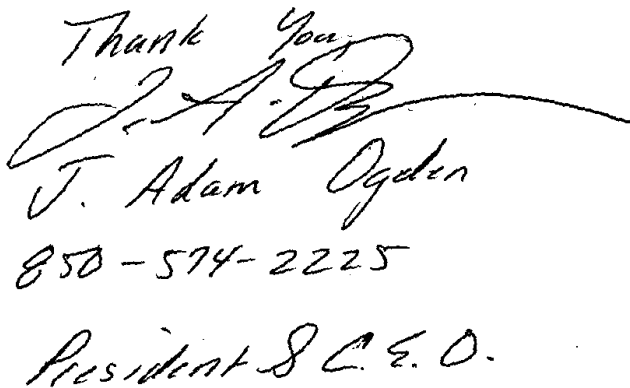 Thank You,
J. A. O
J. Adam Ogden
850-574-2225
President & C.E.O.